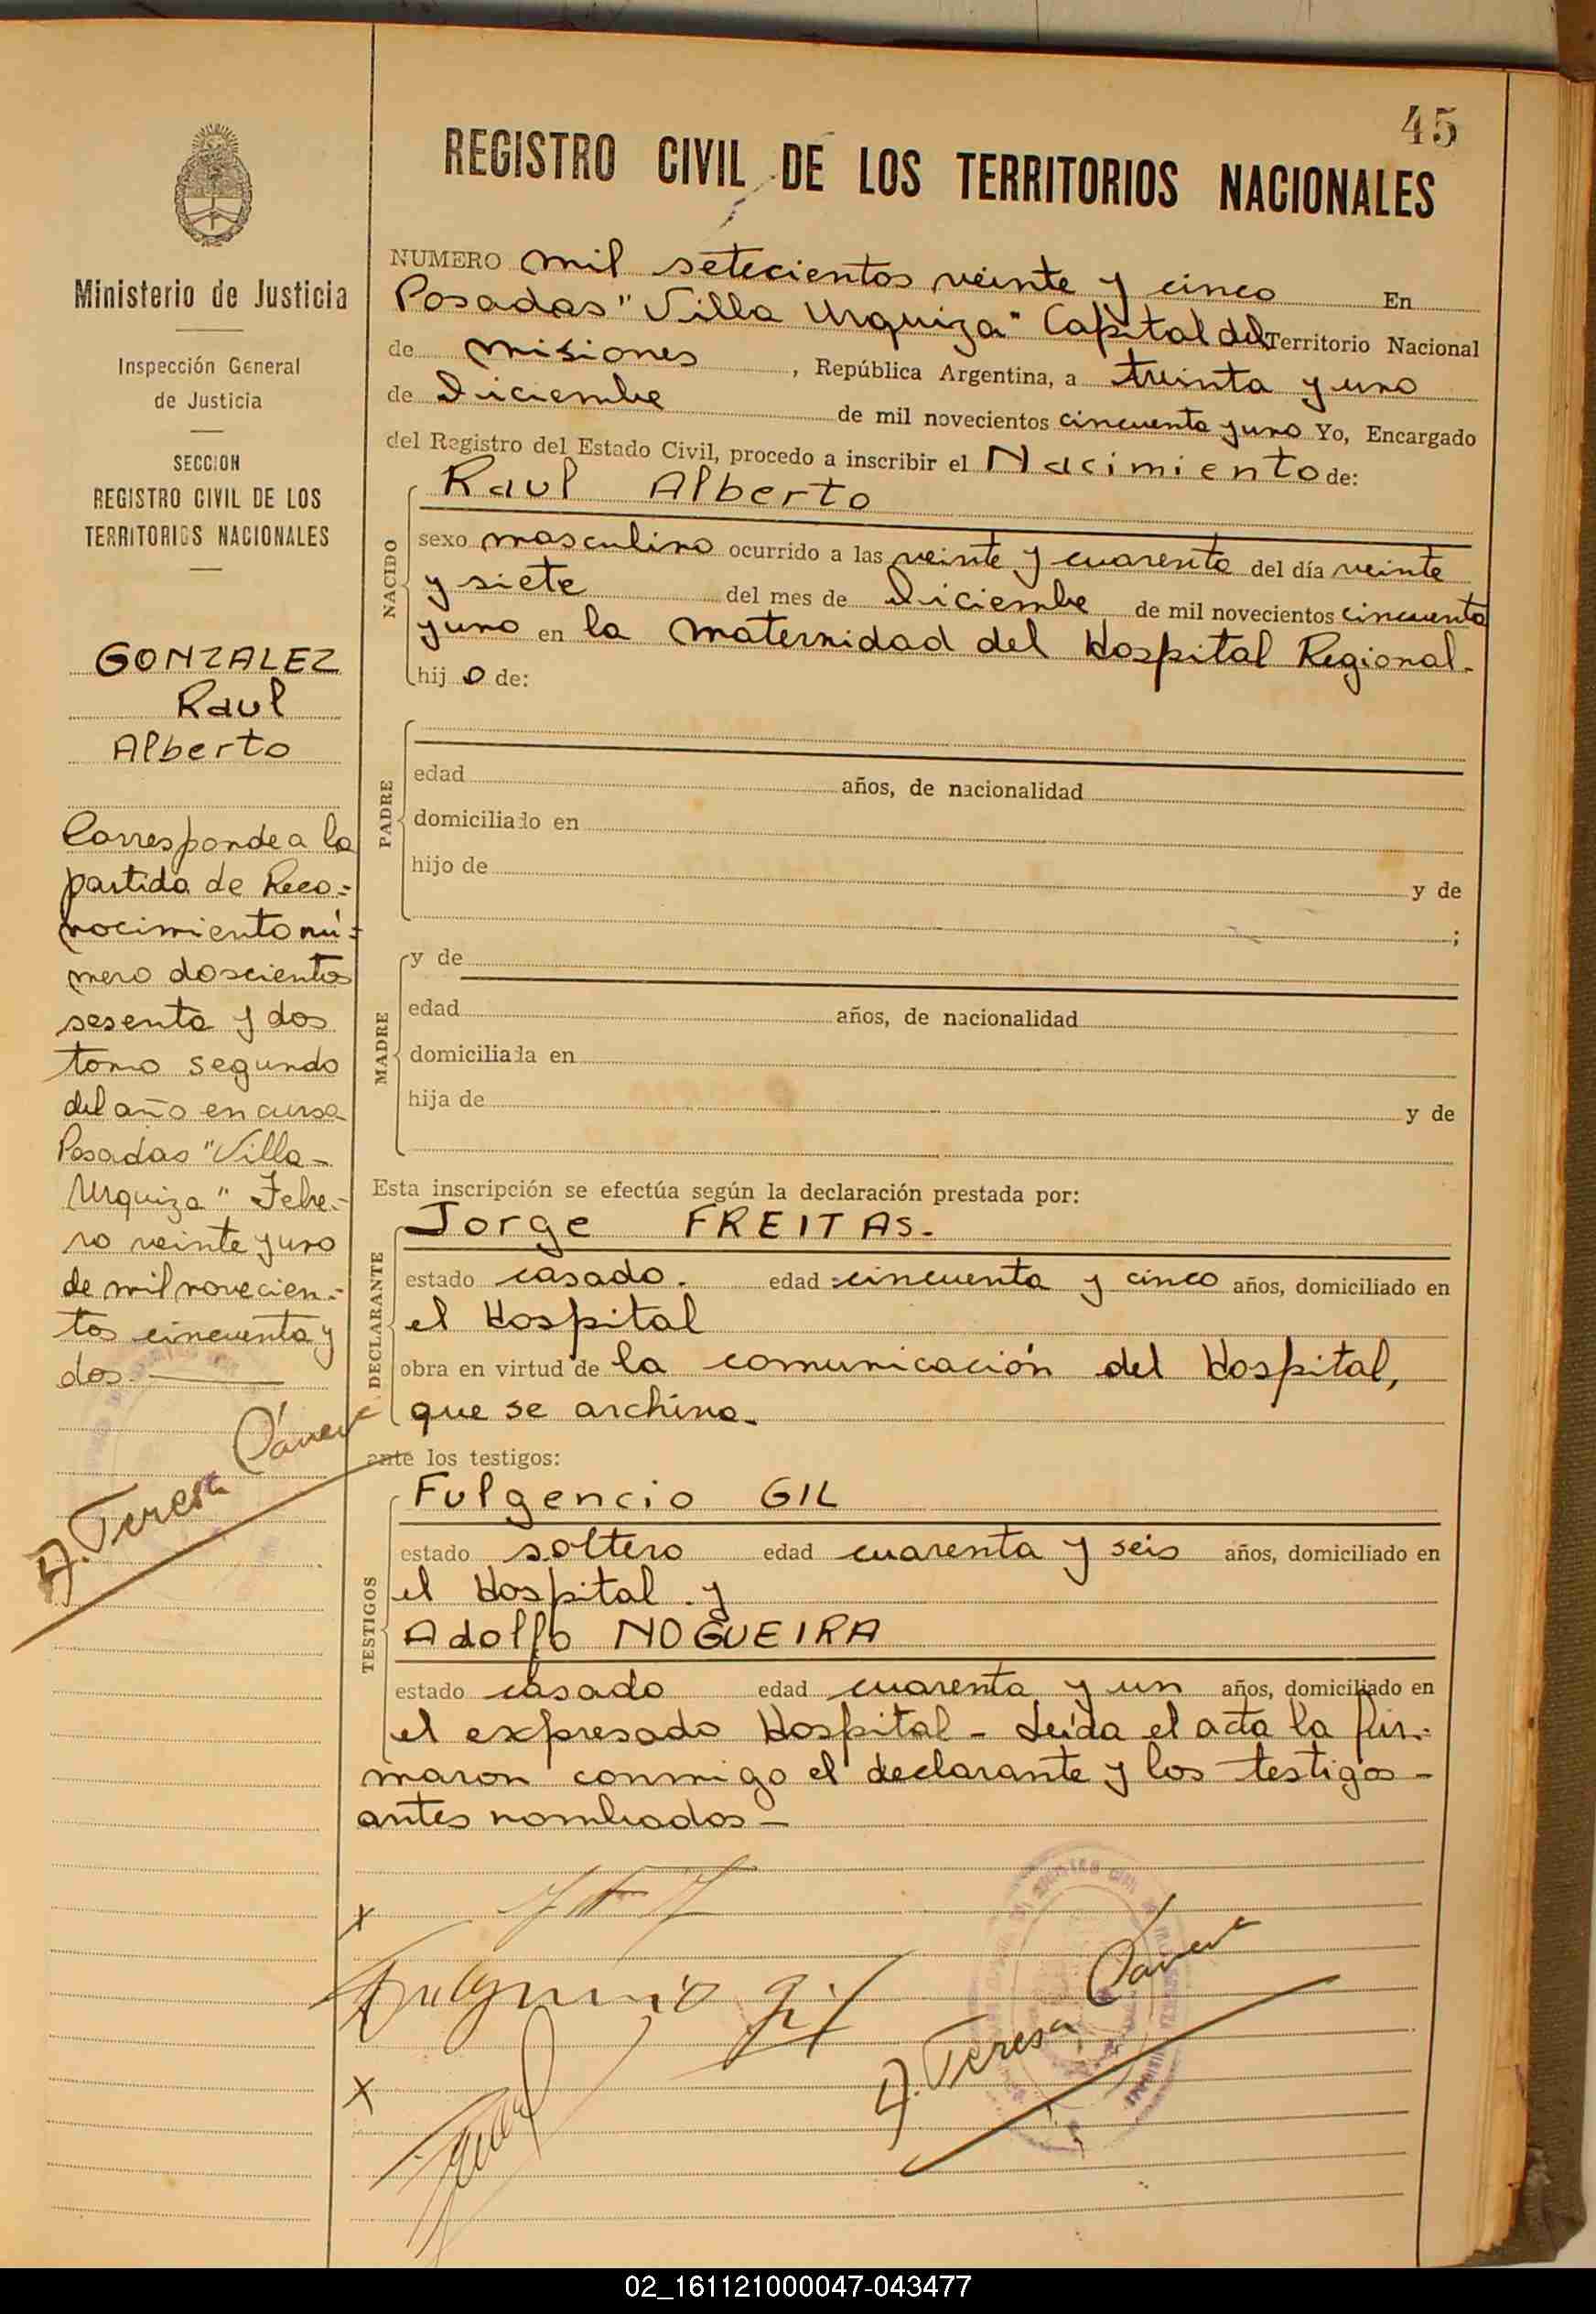 45
REGISTRO CIVIL DE LOS TERRITORIOS NACIONALES
Ministerio de Justicia
Inspección General
de Justicia
SECCION
REGISTRO CIVIL DE LOS
TERRITORIOS NACIONALES
GONZALEZ
Raul
Alberto
Corresponde a la
partida de Reco.=
nocimiento nú=
mero doscientos
sesenta y dos
tomo segundo
del año en curso
Posadas "Villa-
Urquiza" Febre.-
ro veinte y uno
de mil novecien.-
tos cincuenta y
dos.
A. Teresa
NUMERO mil setecientos veinte y cinco En
Posadas "Villa Urquiza" Capital del Territorio Nacional
de misiones, República Argentina, a treinta y uno
de Diciembre de mil novecientos cincuenta y uno Yo, Encargado
del Registro del Estado Civil, procedo a inscribir el Nacimiento de:
NACIDO
Raul Alberto
sexo masculino ocurrido a las veinte y cuarenta del día veinte
y siete del mes de Diciembre de mil novecientos cincuenta
y uno en la maternidad del Hospital Regional.
hij o de:
PADRE
edad años, de nacionalidad
domiciliado en
hijo de y de
;
MADRE
y de
edad años, de nacionalidad
domiciliada en
hija de y de
Esta inscripción se efectúa según la declaración prestada por:
DECLARANTE
Jorge FREITAS.-
estado casado. edad cincuenta y cinco años, domiciliado en
el Hospital
obra en virtud de la comunicación del Hospital,
que se archiva.
ante los testigos:
TESTIGOS
Fulgencio GIL
estado soltero edad cuarenta y seis años, domiciliado en
el Hospital. y
Adolfo NOGUEIRA
estado casado edad cuarenta y un años, domiciliado en
el expresado Hospital - Leída el acta la fir.=
maron conmigo el declarante y los testigos -
antes nombrados -
x
Fulgencio Gil
x
A. Teresa
02_161121000047-043477